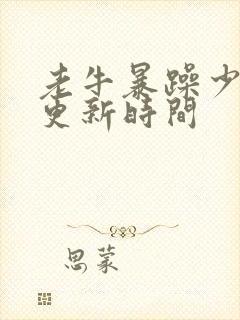 老牛暴躁少
更新時間
思蒙